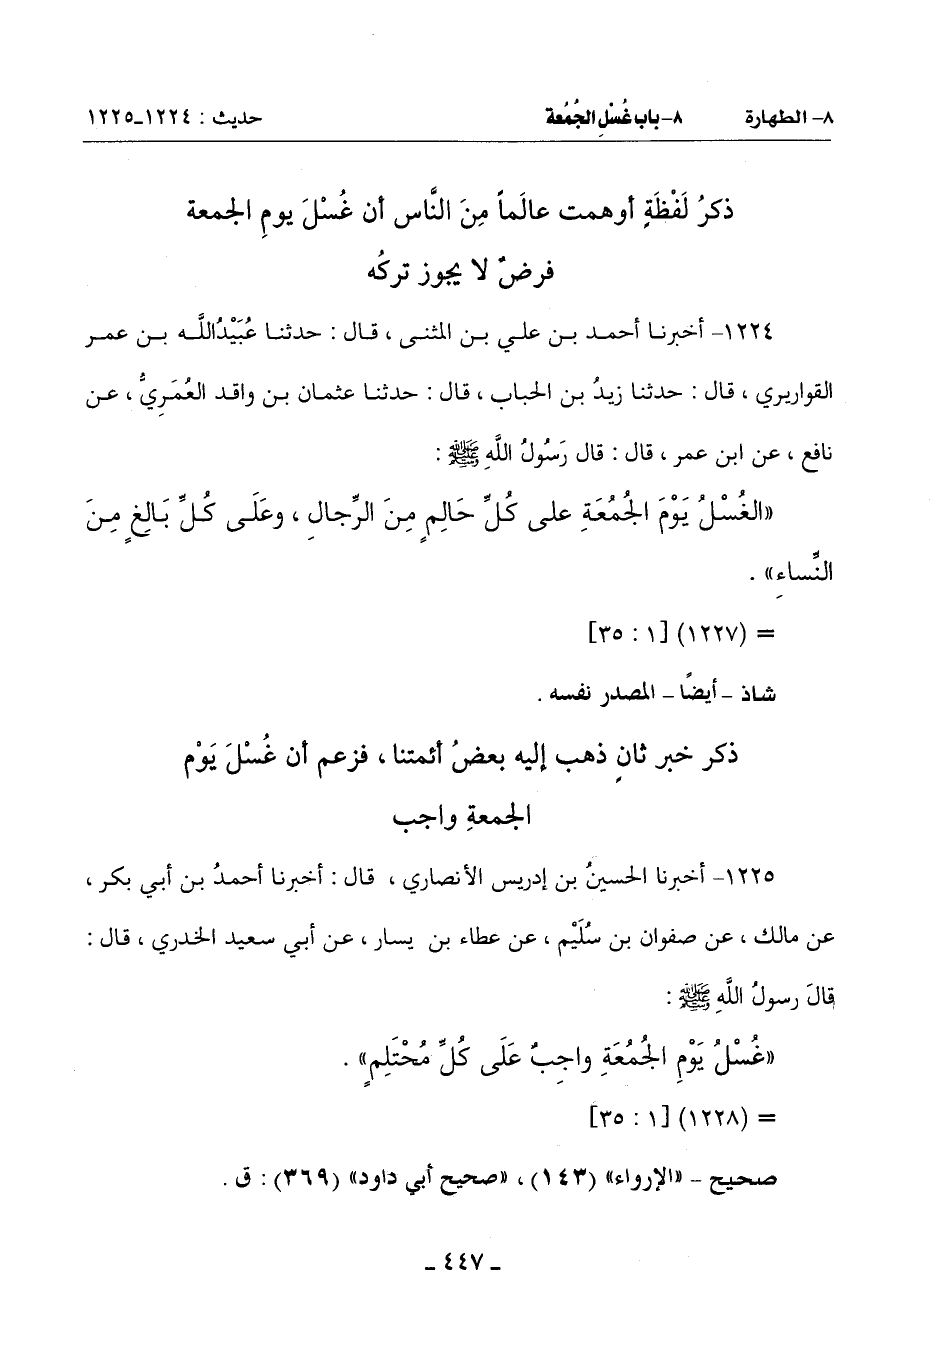 ٨- الطهارة ٨- باب غُسْلِ الجُمُعة حديث : ١٢٢٤ـ١٢٢٥
ذكرُ لَفْظَةٍ أوهمت عالَماً مِنَ النَّاس أن غُسْلَ يومِ الجمعة
فرضٌ لا يجوز تركُه
١٢٢٤- أخبرنا أحمد بن علي بن المثنى ، قال : حدثنا عُبَيْدُاللَّه بن عمر
القواريري ، قال : حدثنا زيدُ بن الحباب ، قال : حدثنا عثمان بن واقد العُمَرِيُّ ، عن
نافع ، عن ابن عمر ، قال : قال رَسُولُ اللَّهِ ﷺ :
«الغُسْلُ يَوْمَ الجُمُعَةِ على كُلِّ حَالِمٍ مِنَ الرِّجالِ ، وعَلَى كُلِّ بَالِغٍ مِنَ
النِّساءِ» .
= (١٢٢٧) [١ : ٣٥]
شاذ - أيضًا - المصدر نفسه .
ذكر خبر ثانٍ ذهب إليه بعضُ أئمتنا ، فزعم أن غُسْلَ يَوْم
الجمعةِ واجب
١٢٢٥- أخبرنا الحسينُ بن إدريس الأنصاري ، قال : أخبرنا أحمدُ بن أبي بكر ،
عن مالك ، عن صفوان بن سُلَيْمٍ ، عن عطاء بن يسار ، عن أبي سعيد الخدري ، قال :
قالَ رسولُ اللَّهِ ﷺ :
«غُسْلُ يَوْمِ الجُمُعَةِ واجِبٌ عَلَى كُلِّ مُحْتَلِمٍ» .
= (١٢٢٨) [١ : ٣٥]
صحيح - «الإرواء» (١٤٣) ، «صحيح أبي داود» (٣٦٩) : ق .
ـ ٤٤٧ ـ